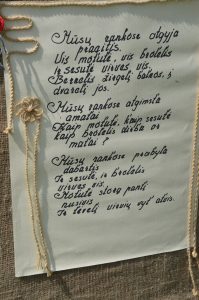 Mūsų rankose atgyja
praeitis.
Vis motulė, vis brolelis
Ir sesutė virves vis.
Bėrelis žirgelį balnos, į
dvarelį jos.
Mūsų rankose atgimsta
amatai
Kaip motulė, kaip sesutė
kaip brolelis dirba ar
matai?
Mūsų rankose prabyla
dabartis
Ir sesutė, ir brolelis
virves vis
Motulė storą pantį
nusivis
Ir tėvelį virvių vyt atvis.